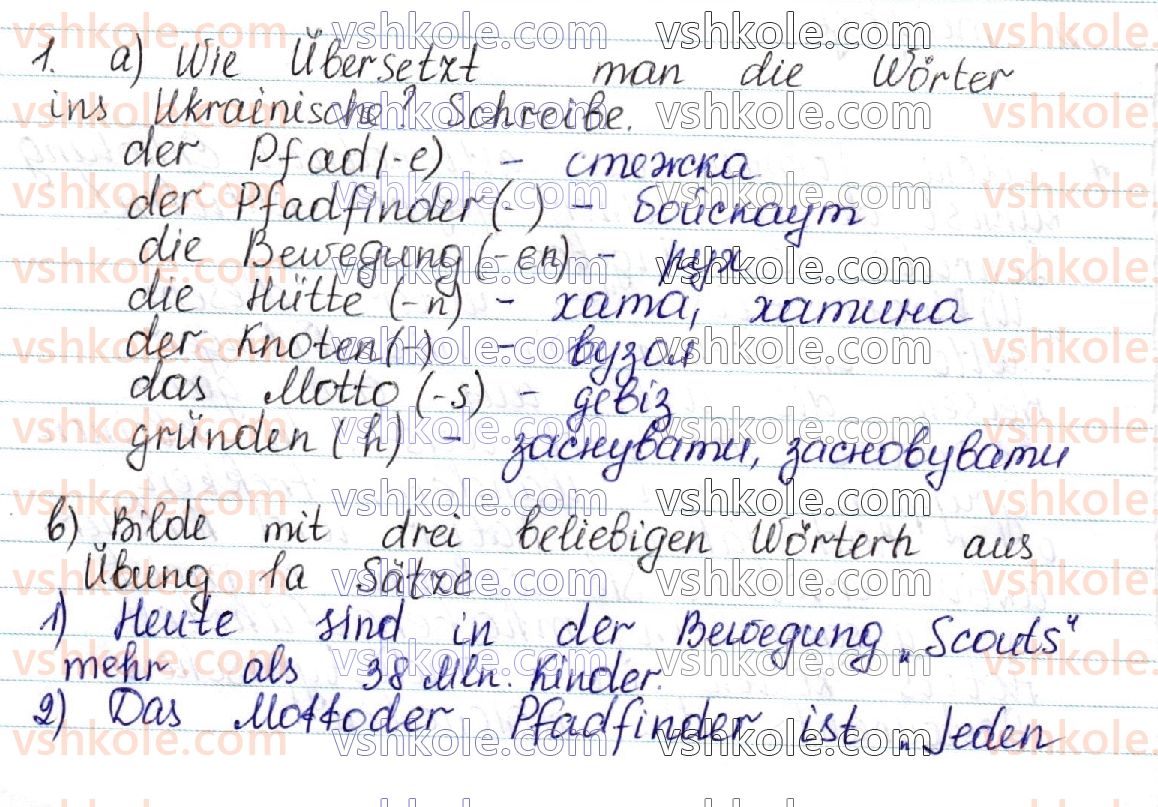 1. a) Wie Übersetzt man die Wörter
ins Ukrainische? Schreibe.
der Pfad(-e) - стежка
der Pfadfinder(-) - бойскаут
die Bewegung(-en) - рух
die Hütte(-n) - хата, хатина
der Knoten(-) - вузол
das Motto(-s) - девіз
gründen(h) - заснувати, засновувати
b) Bilde mit drei beliebigen Wörtern aus
Übung 1a Sätze
1) Heute sind in der Bewegung „Scouts“
mehr als 38 Mln. Kinder.
2) Das Motto der Pfadfinder ist „Jeden
vshkole.com